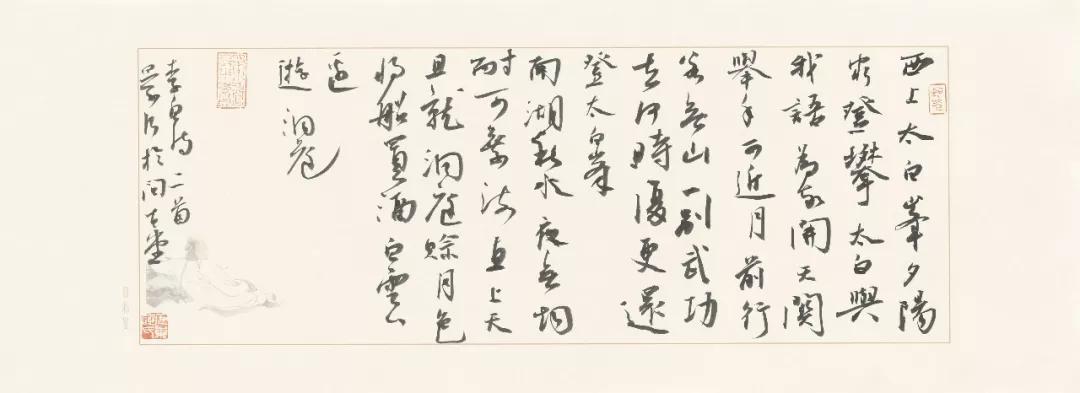 西上太白峯夕陽
穷登攀太白與
我語為我開天関
舉手可近月前行
若無山一别武功
去何時復更還
登太白峯
南湖秋水夜無烟
耐可乘流直上天
且就洞庭賒月色
将船買酒白雲
边
遊洞庭
李白詩二首
於問